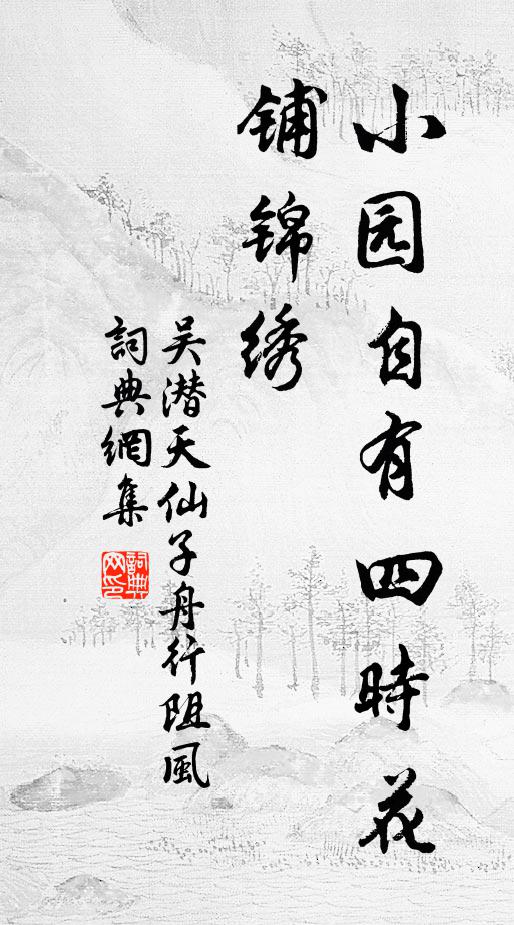 小园自有四時花
铺锦绣
吴潜天仙子舟行阻風
詞典網集
詞典
网印